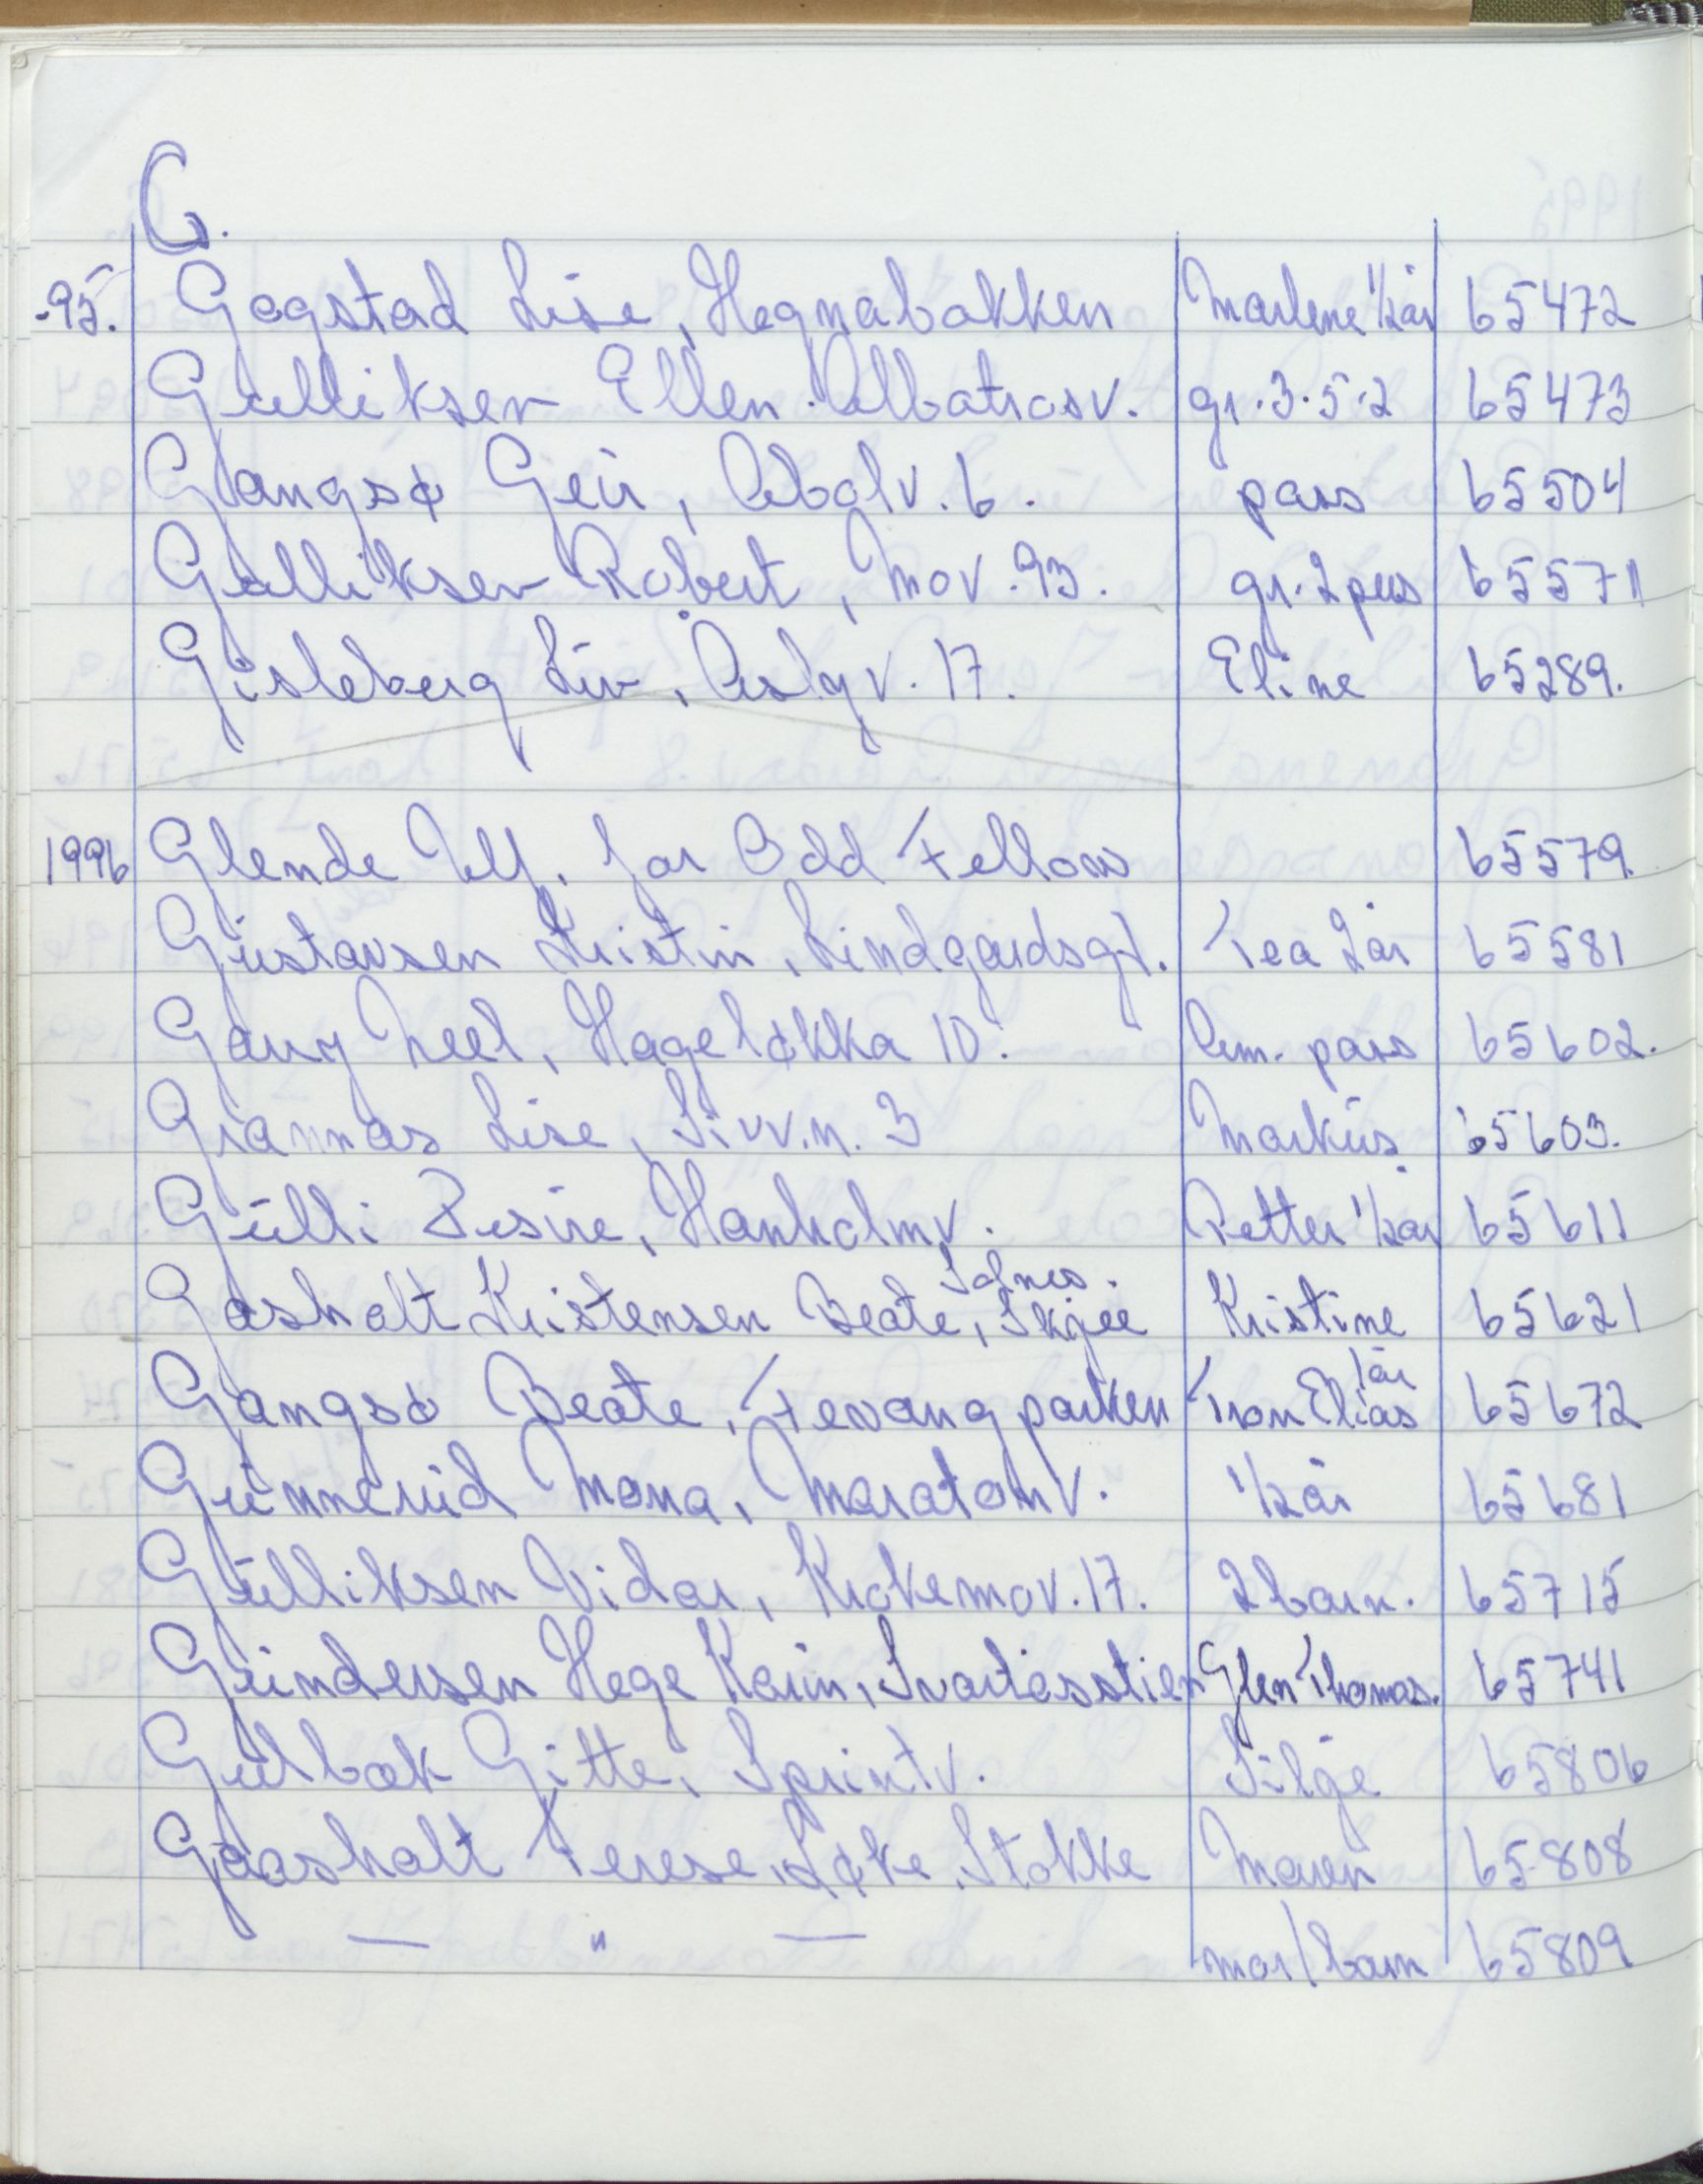 G.
-95. Gogstad Lise, Hegnabakken Marlene 1/2år 65472
Gulliksen Ellen. Albatrosv. gr. 3.5.2 65473
Gangsø Geir, Abalv. 6. pass 65504
Gulliksen Robert, Mov. 93. gr. 2 pers 65571
Gisleberg Liv, Aslyv. 17. Eline 65289.
1996 Glende Ulf. for Odd Fellow 65579.
Gustavsen Kristin, Lindgaardsgt. Tea 2år 65581
Gary Neel, Hageløkka 10. Am. pass 65602.
Grannas Lise, Sivv.n. 3 Markus 65603.
Gulli Desire, Hanholmv. Petter 1/2år 65611
Gasholt Kristensen Beate, Skjee Kristine 65621
Gangsø Beate, Fevangparken Tron Elias 1år 65672
Gunnerud Mona, Maratonv. 1/2år 65681
Gulliksen Vidar, Krokemov. 17. 2 barn. 65715
Gundersen Hege Karin, Svartåsstien Glen Thomas. 65741
Gulbok Gitte, Sprintv. Silje 65806
Gaasholt Terese, Løke, Stokke Maren 65808
— " — mor/barn 65809